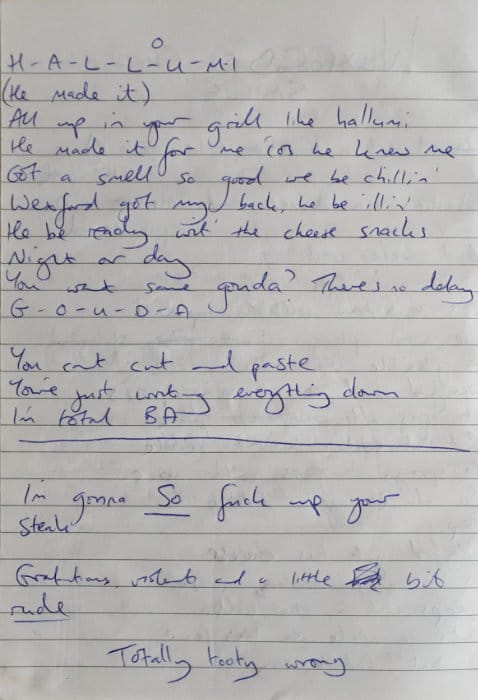 H-A-L-L-O-U-M-I
(He made it)
All up in your grill like hallumi
He made it for me 'cos he knew me
Got a smell so good we be chillin'
Wexford got my back, he be illin'
He be ready wit' the cheese snacks
Night or day
You want some gouda? There's no delay
G-O-U-D-A
You cant cut and paste
You're just writing everything down
In total BA
I'm gonna So fuck up your
steak
Gratuitous, violent and a little bit
rude
Totally tooty wrong